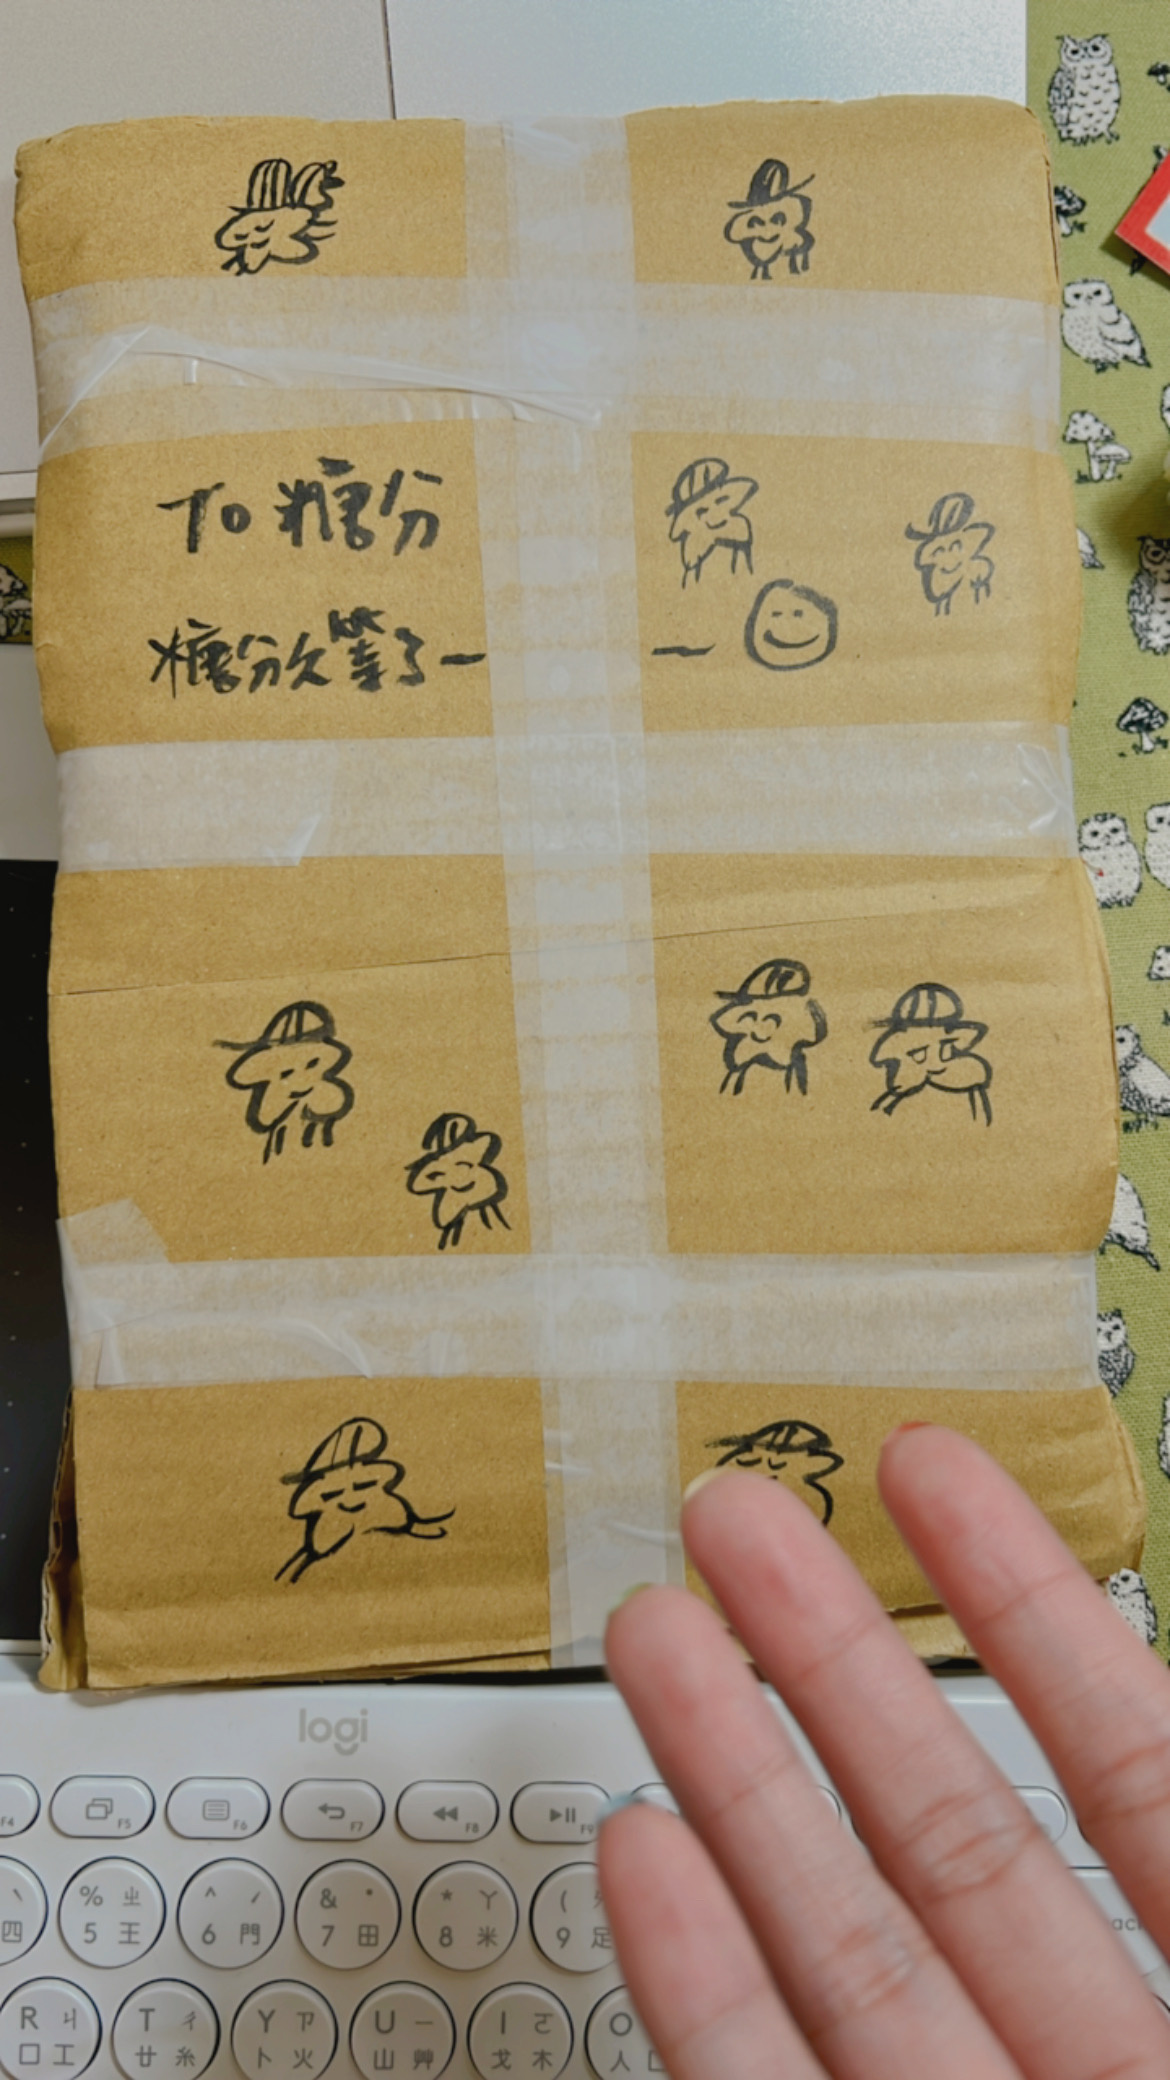 To 糖分
糖分久等了— —
logi
F4 F5 F6 F7 F8 F9
% ㄓ ^ ˊ & ˙ * ㄚ (
四 5 王 6 門 7 田 8 米 9 足
R ㄐ T ㄔ Y ㄗ U ㄧ I ㄛ O
口 工 廿 糸 卜 火 山 艸 戈 木 人